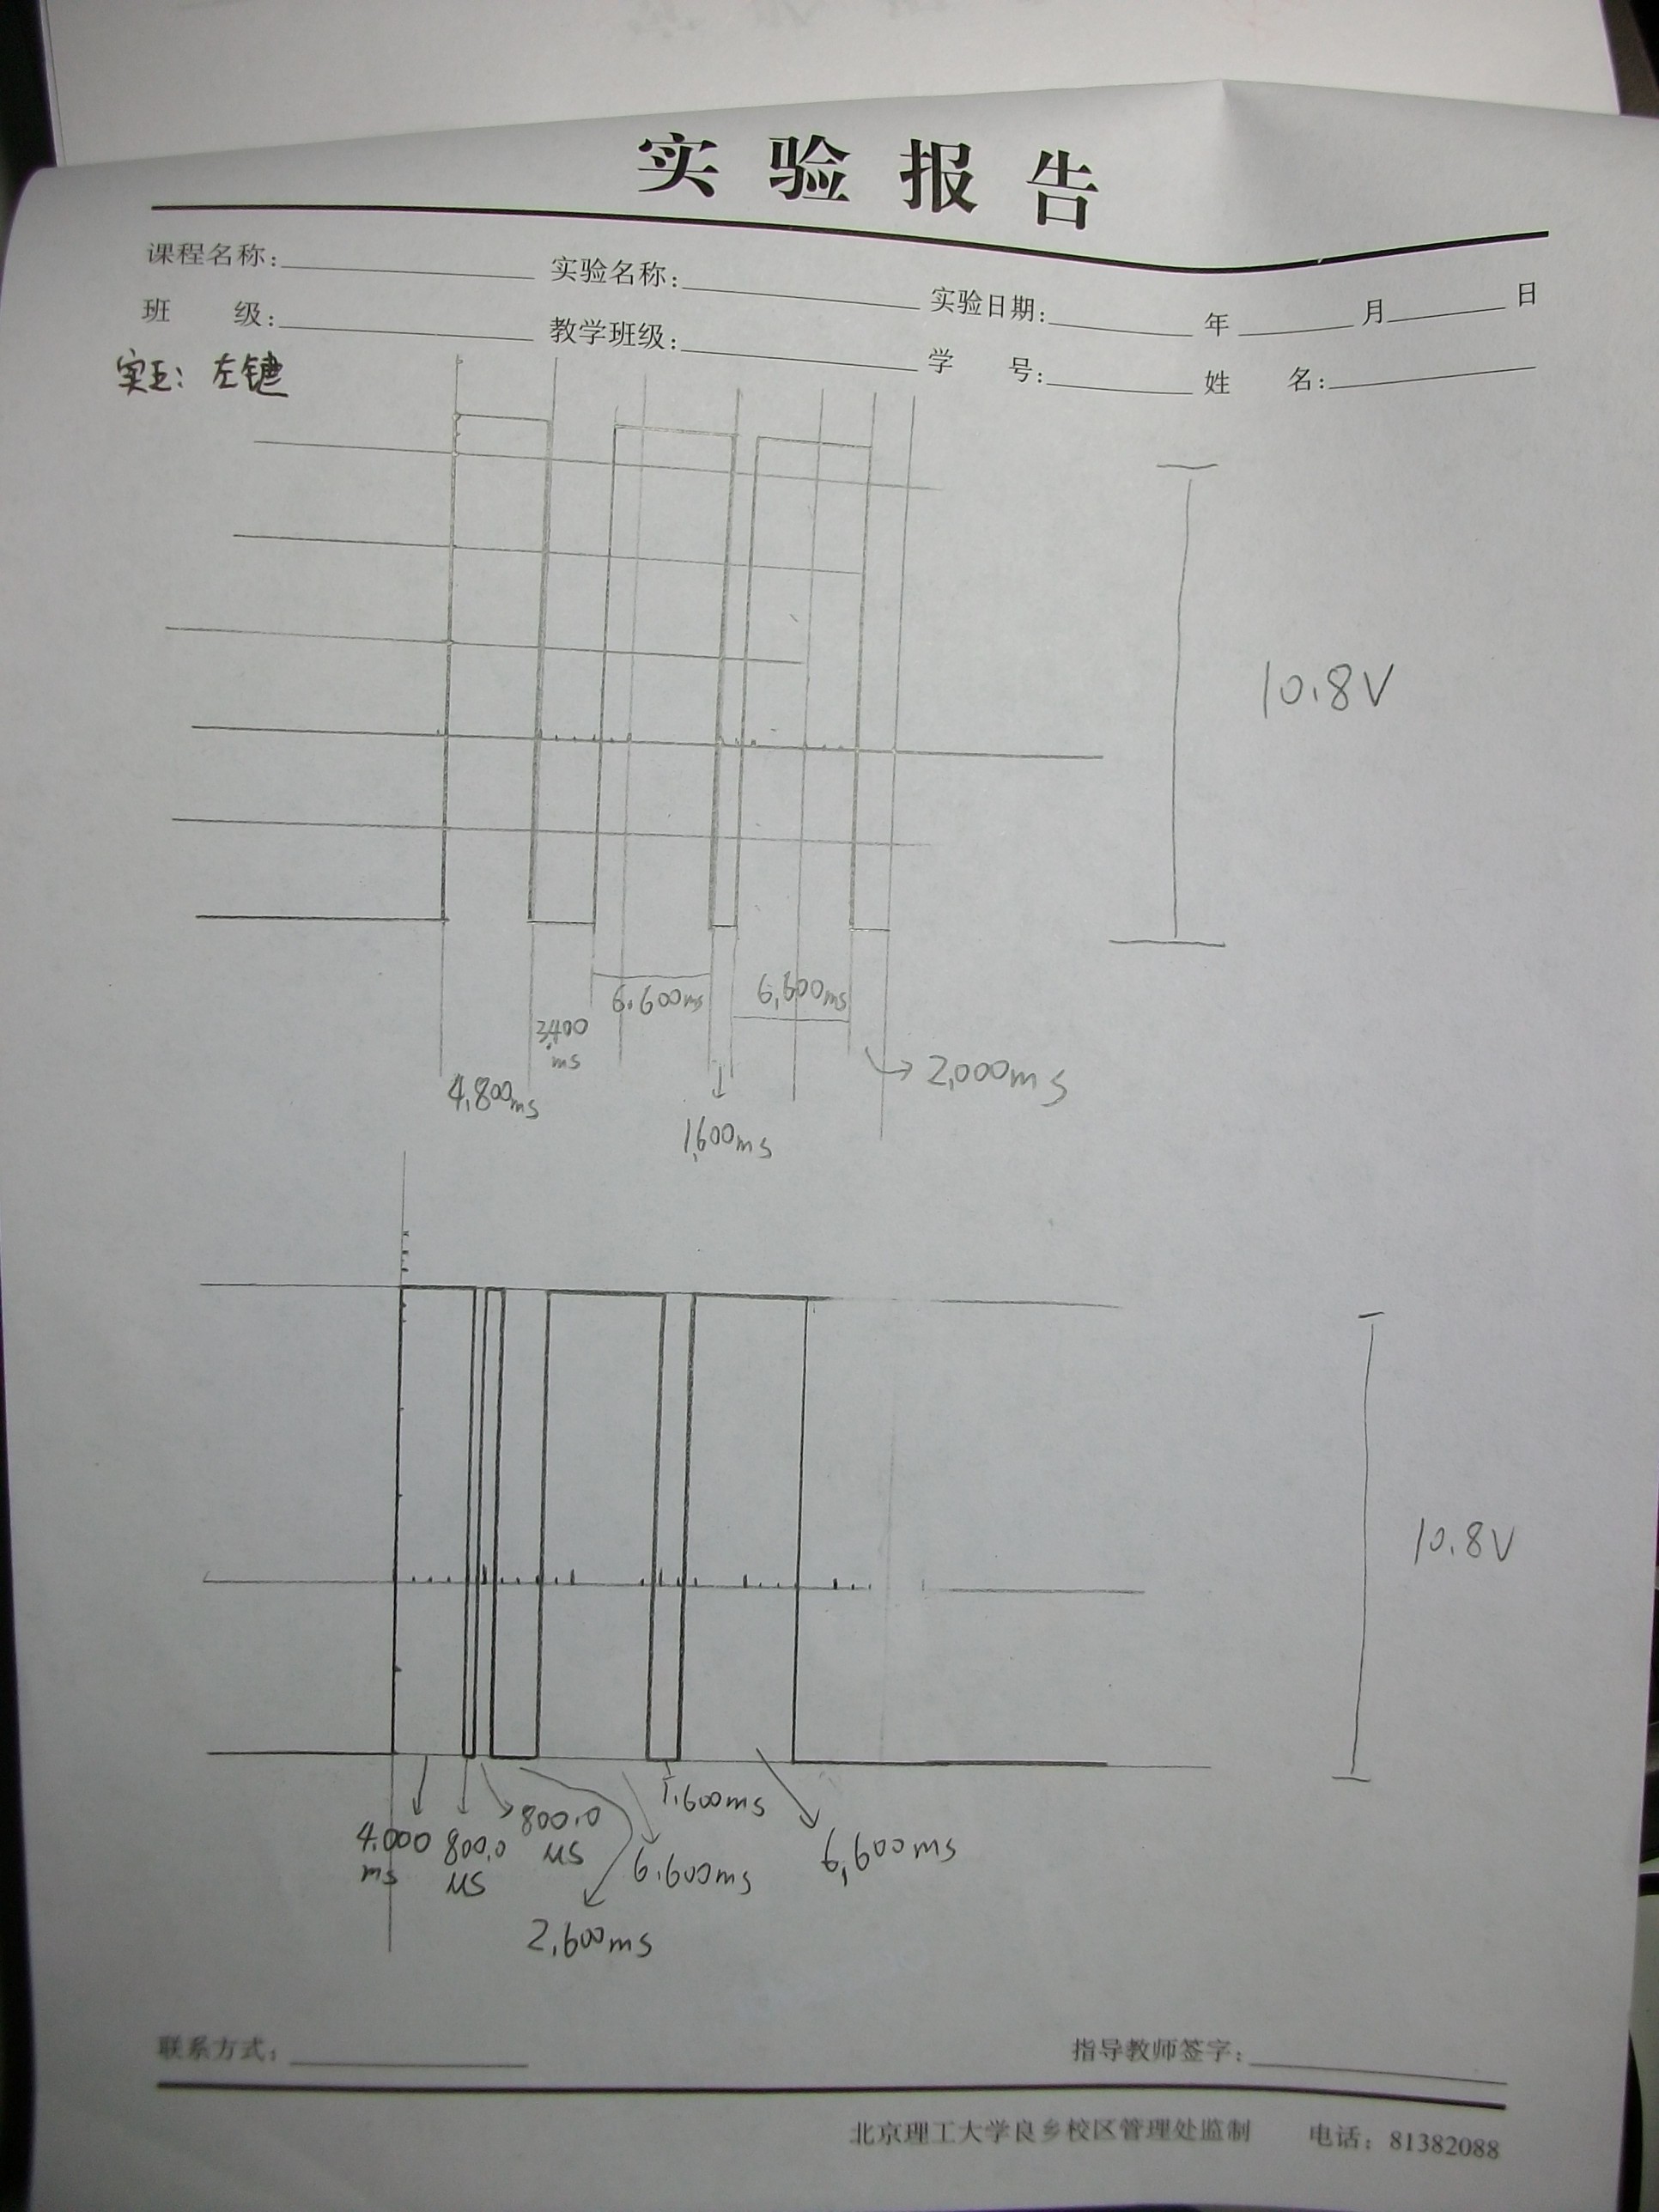 实验报告
课程名称： 实验名称： 实验日期： 年 月 日
班 级： 教学班级： 学 号： 姓 名：
左键
10.8V
6.600ms 6.600ms
3.400
ms
2.000ms
4.800ms
1.600ms
10.8V
1.600ms
800.0
μS
4.000
ms
800.0
μS
6.600ms
6.600ms
2.600ms
联系方式： 指导教师签字：
北京理工大学良乡校区管理处监制 电话：81382088